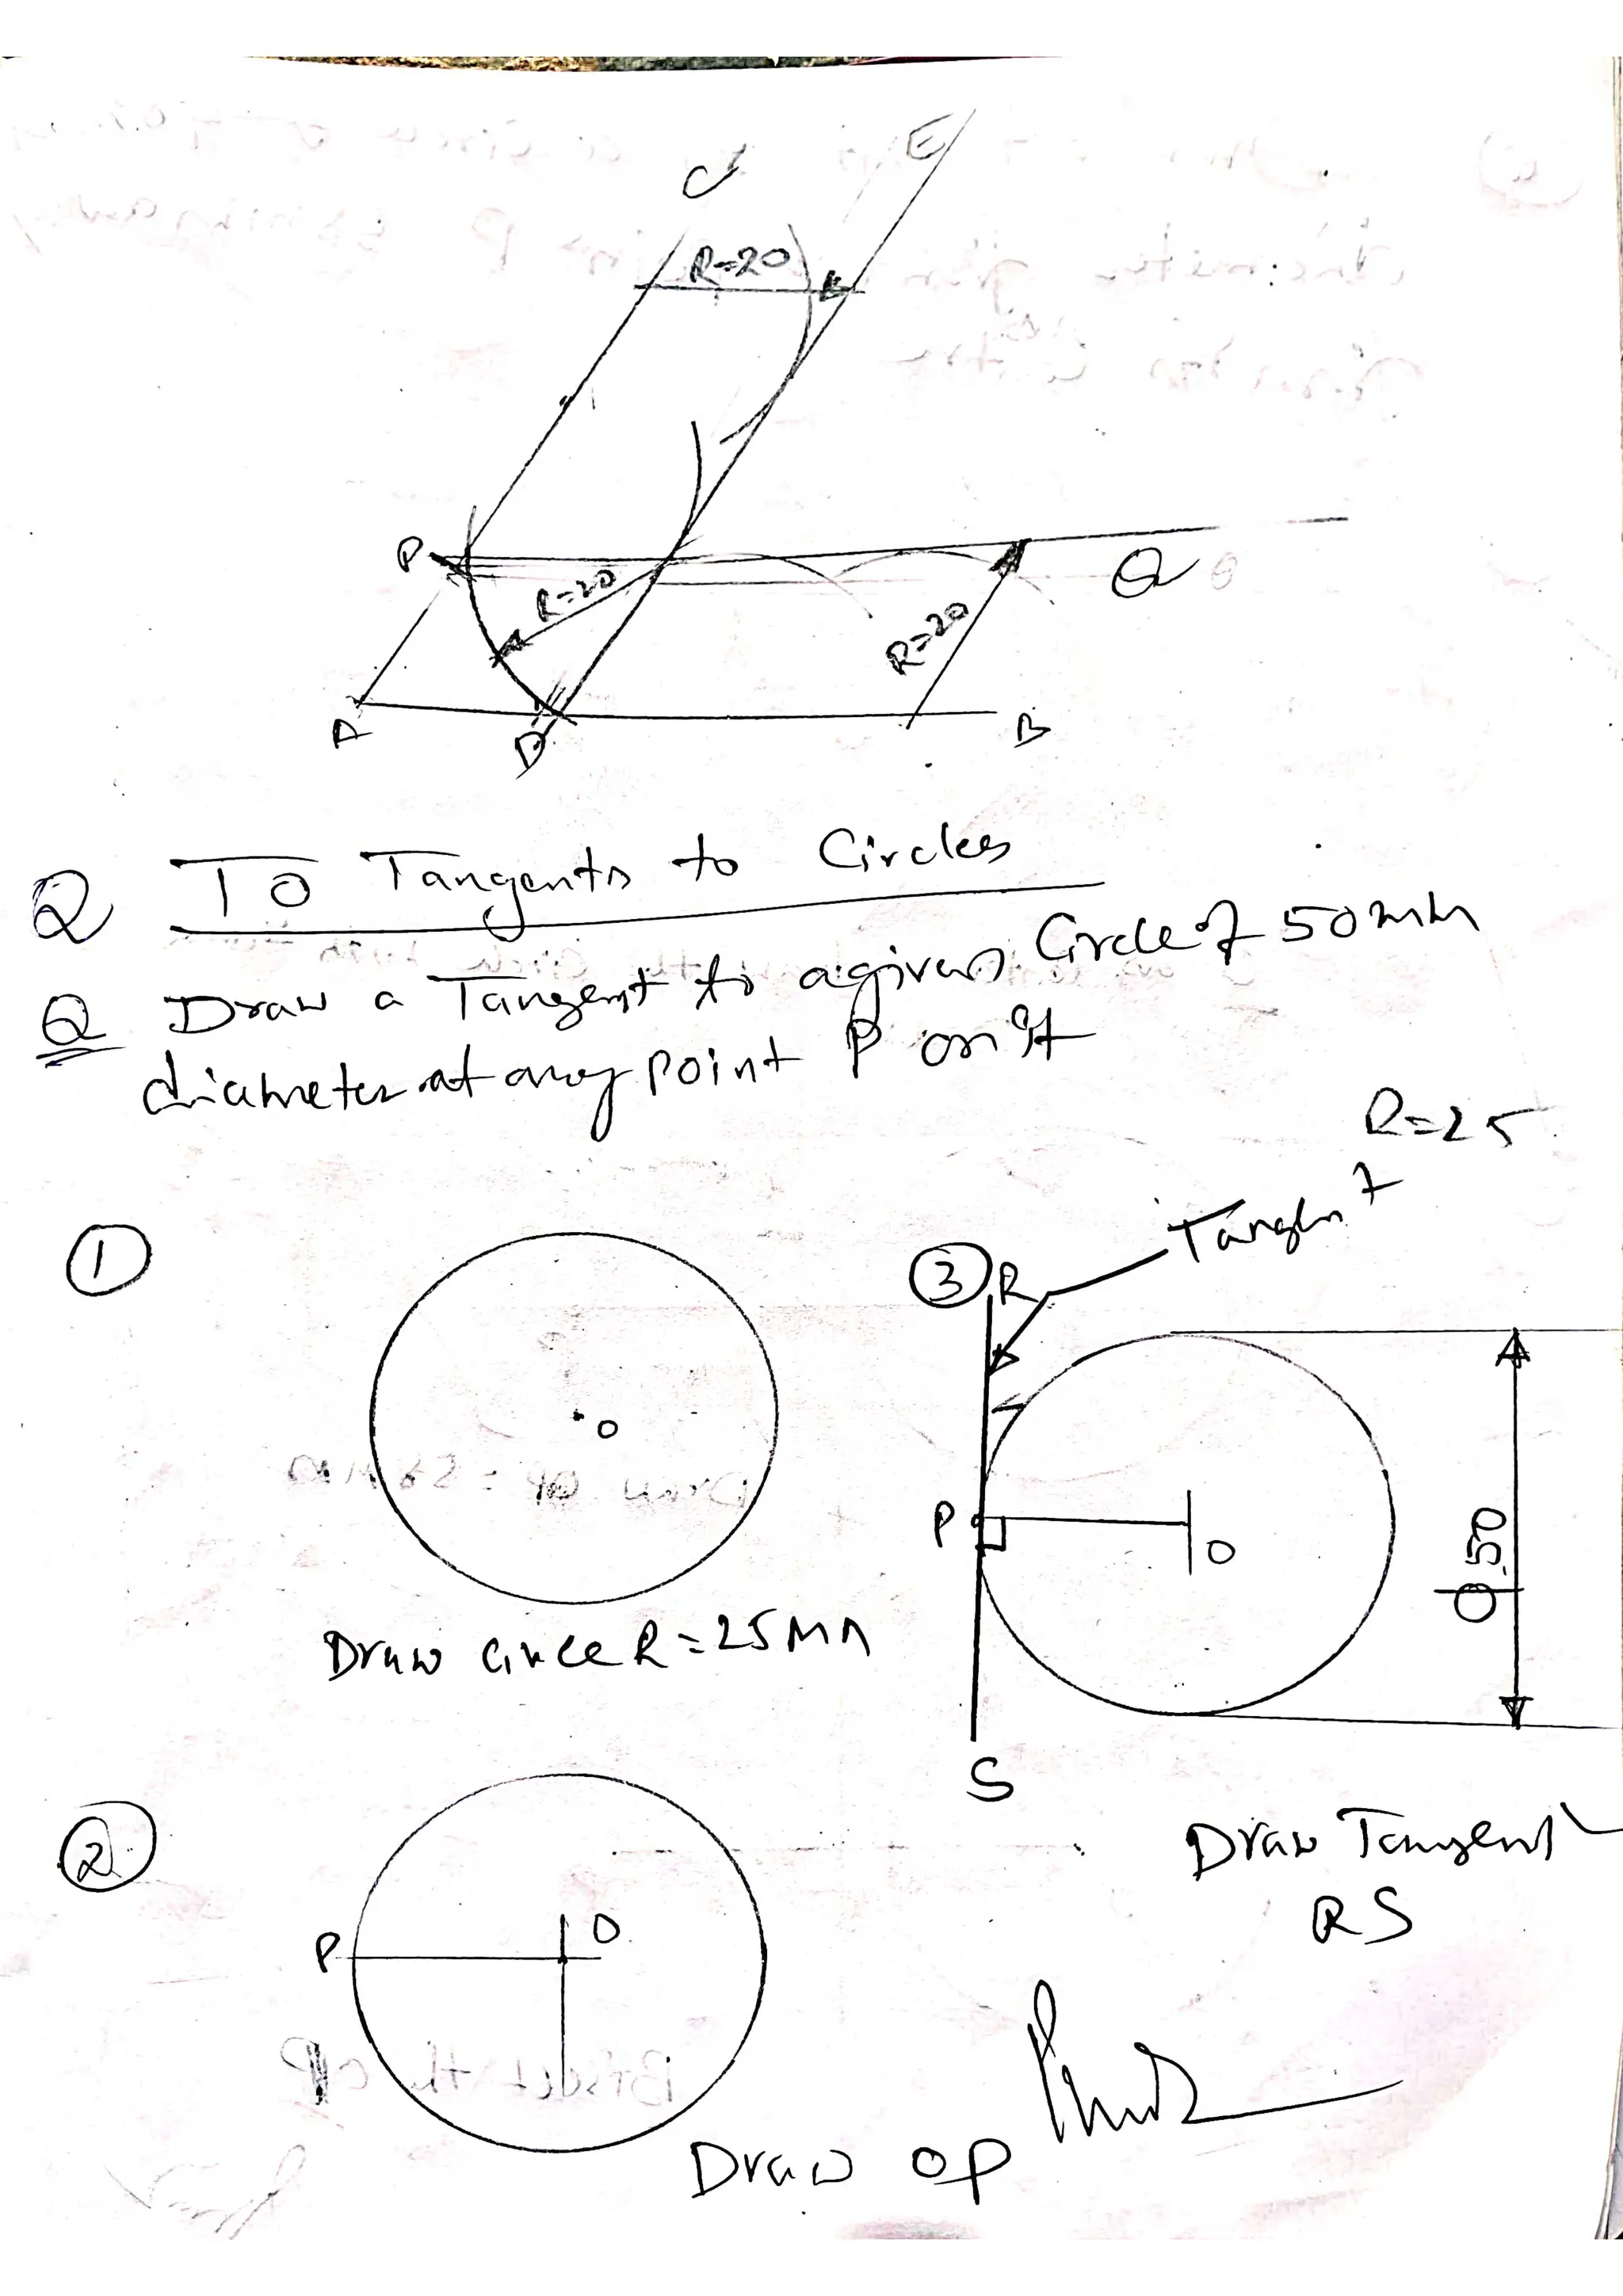 C
E
R=20
P
R=20
Q
R=20
A
D
B
Q TO Tangents to Circles
Q Draw a Tangent to a given Circle of 50mm
diameter at any point P on it
R=25
Tangent
1
3 R
O
P
O
φ50
Draw circle R=25MM
S
2
Draw Tangent
RS
P
O
Draw OP